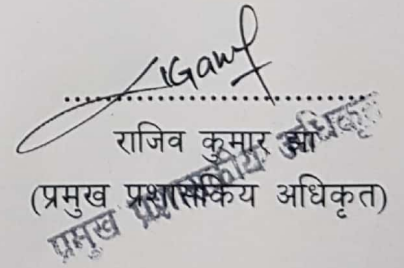 राजिव कुमार झा
(प्रमुख प्रशासकिय अधिकृत)
प्रमुख प्रशासकीय अधिकृत